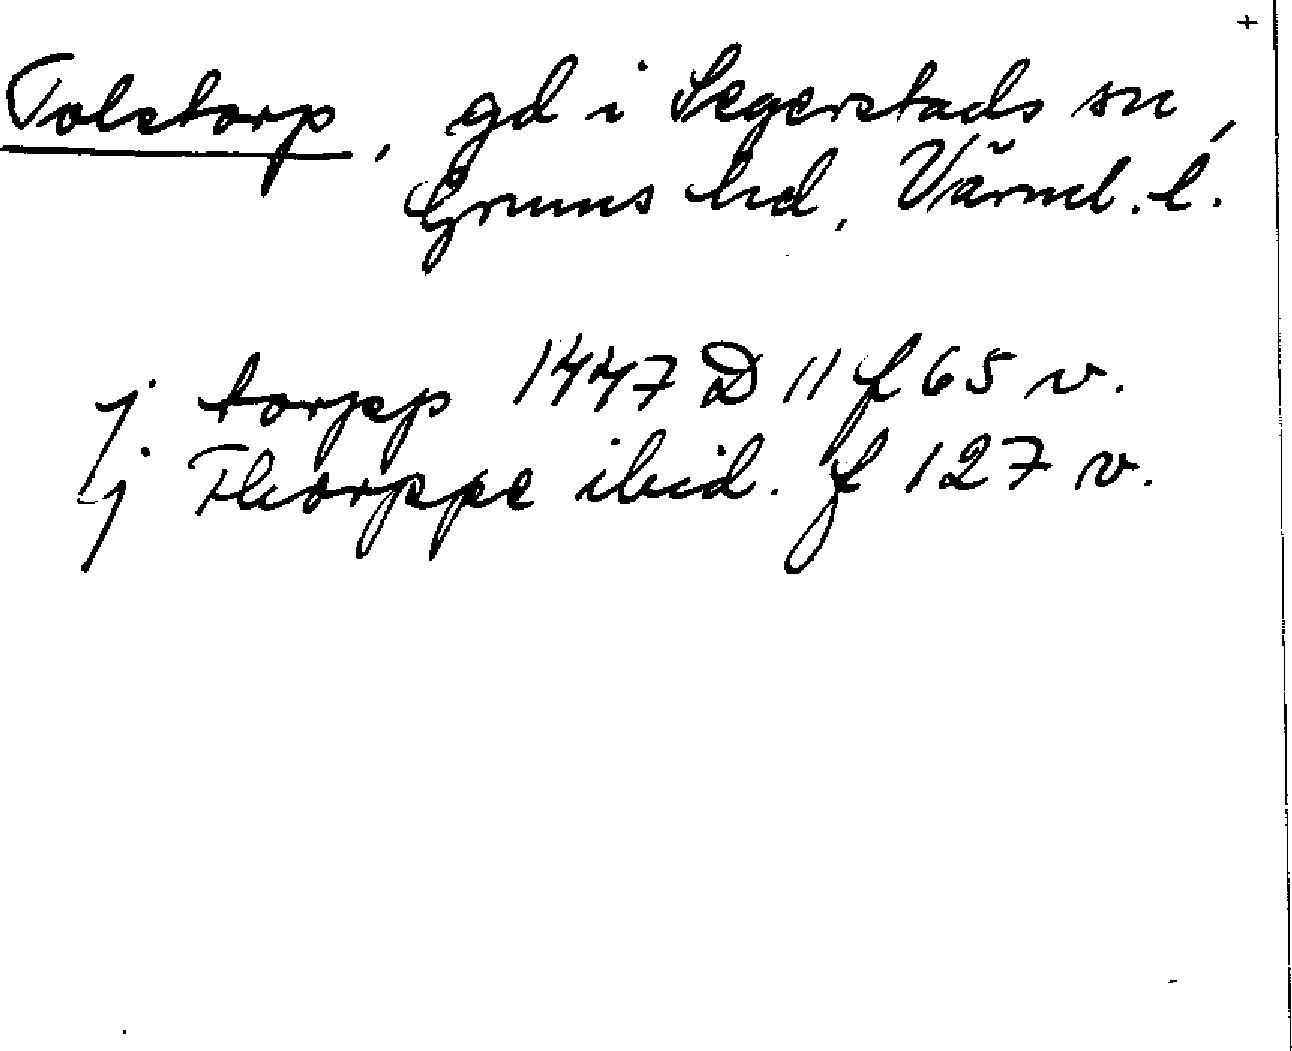 +
Tolstorp, gd i Segerstads sn,
Grums hd, Värml. l.
j torpp 1447 D 11 f 65 v.
j Thorppe ibid. f 127 v.